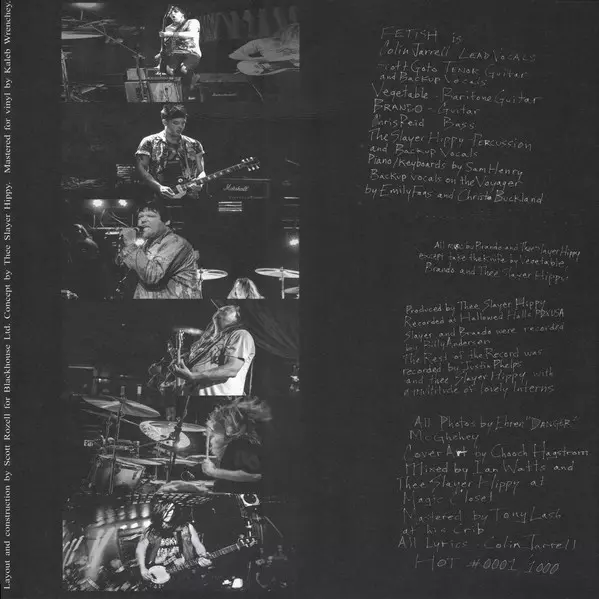 Layout and construction by Scott Rozell for Blackhouse Ltd. Concept by Thee Slayer Hippy. Mastered for vinyl by Kaleb Wrenchey.
FETISH is
Colin Jarrell LEAD VOCALS
Scott Goto TENOR Guitar
and Backup Vocals
Vegetable - Baritone Guitar
BRANDO - Guitar
Chris Reid Bass
The Slayer Hippy PERCUSSION
and Backup Vocals
Piano/Keyboards by Sam Henry
Backup vocals on the Voyager
by Emily and Christo Buckland
Marshall
All by Brando and Thee Slayer Hippy
except the Knife by Vegetable,
Brando and Thee Slayer Hippy
Produced by Thee Slayer Hippy
Recorded at Hallowed Halls PDX USA
Slayer and Brando were recorded
by Billy Anderson
The Rest of the Record was
recorded by Justin Phelps
and thee Slayer Hippy with
a multitude of lovely Interns
All Photos by Ehren "DANGER"
McGhehey
Cover Art by Chooch Hagstrom
Mixed by Ian Watts and
Thee Slayer Hippy at
Magic Closet
Mastered by Tony Lash
at his Crib
All Lyrics - Colin Jarrell
HOT #0001 1000